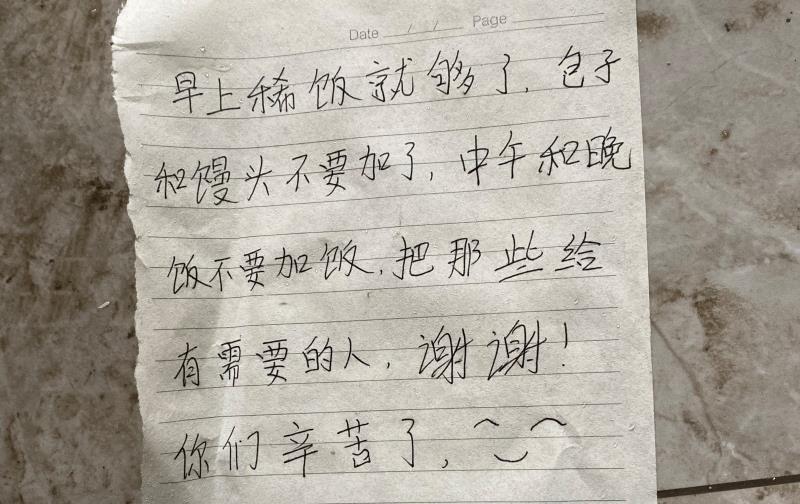 Date / / Page
早上稀饭就够了，包子
和馒头不要加了，中午和晚
饭不要加饭，把那些给
有需要的人，谢谢！
你们辛苦了，